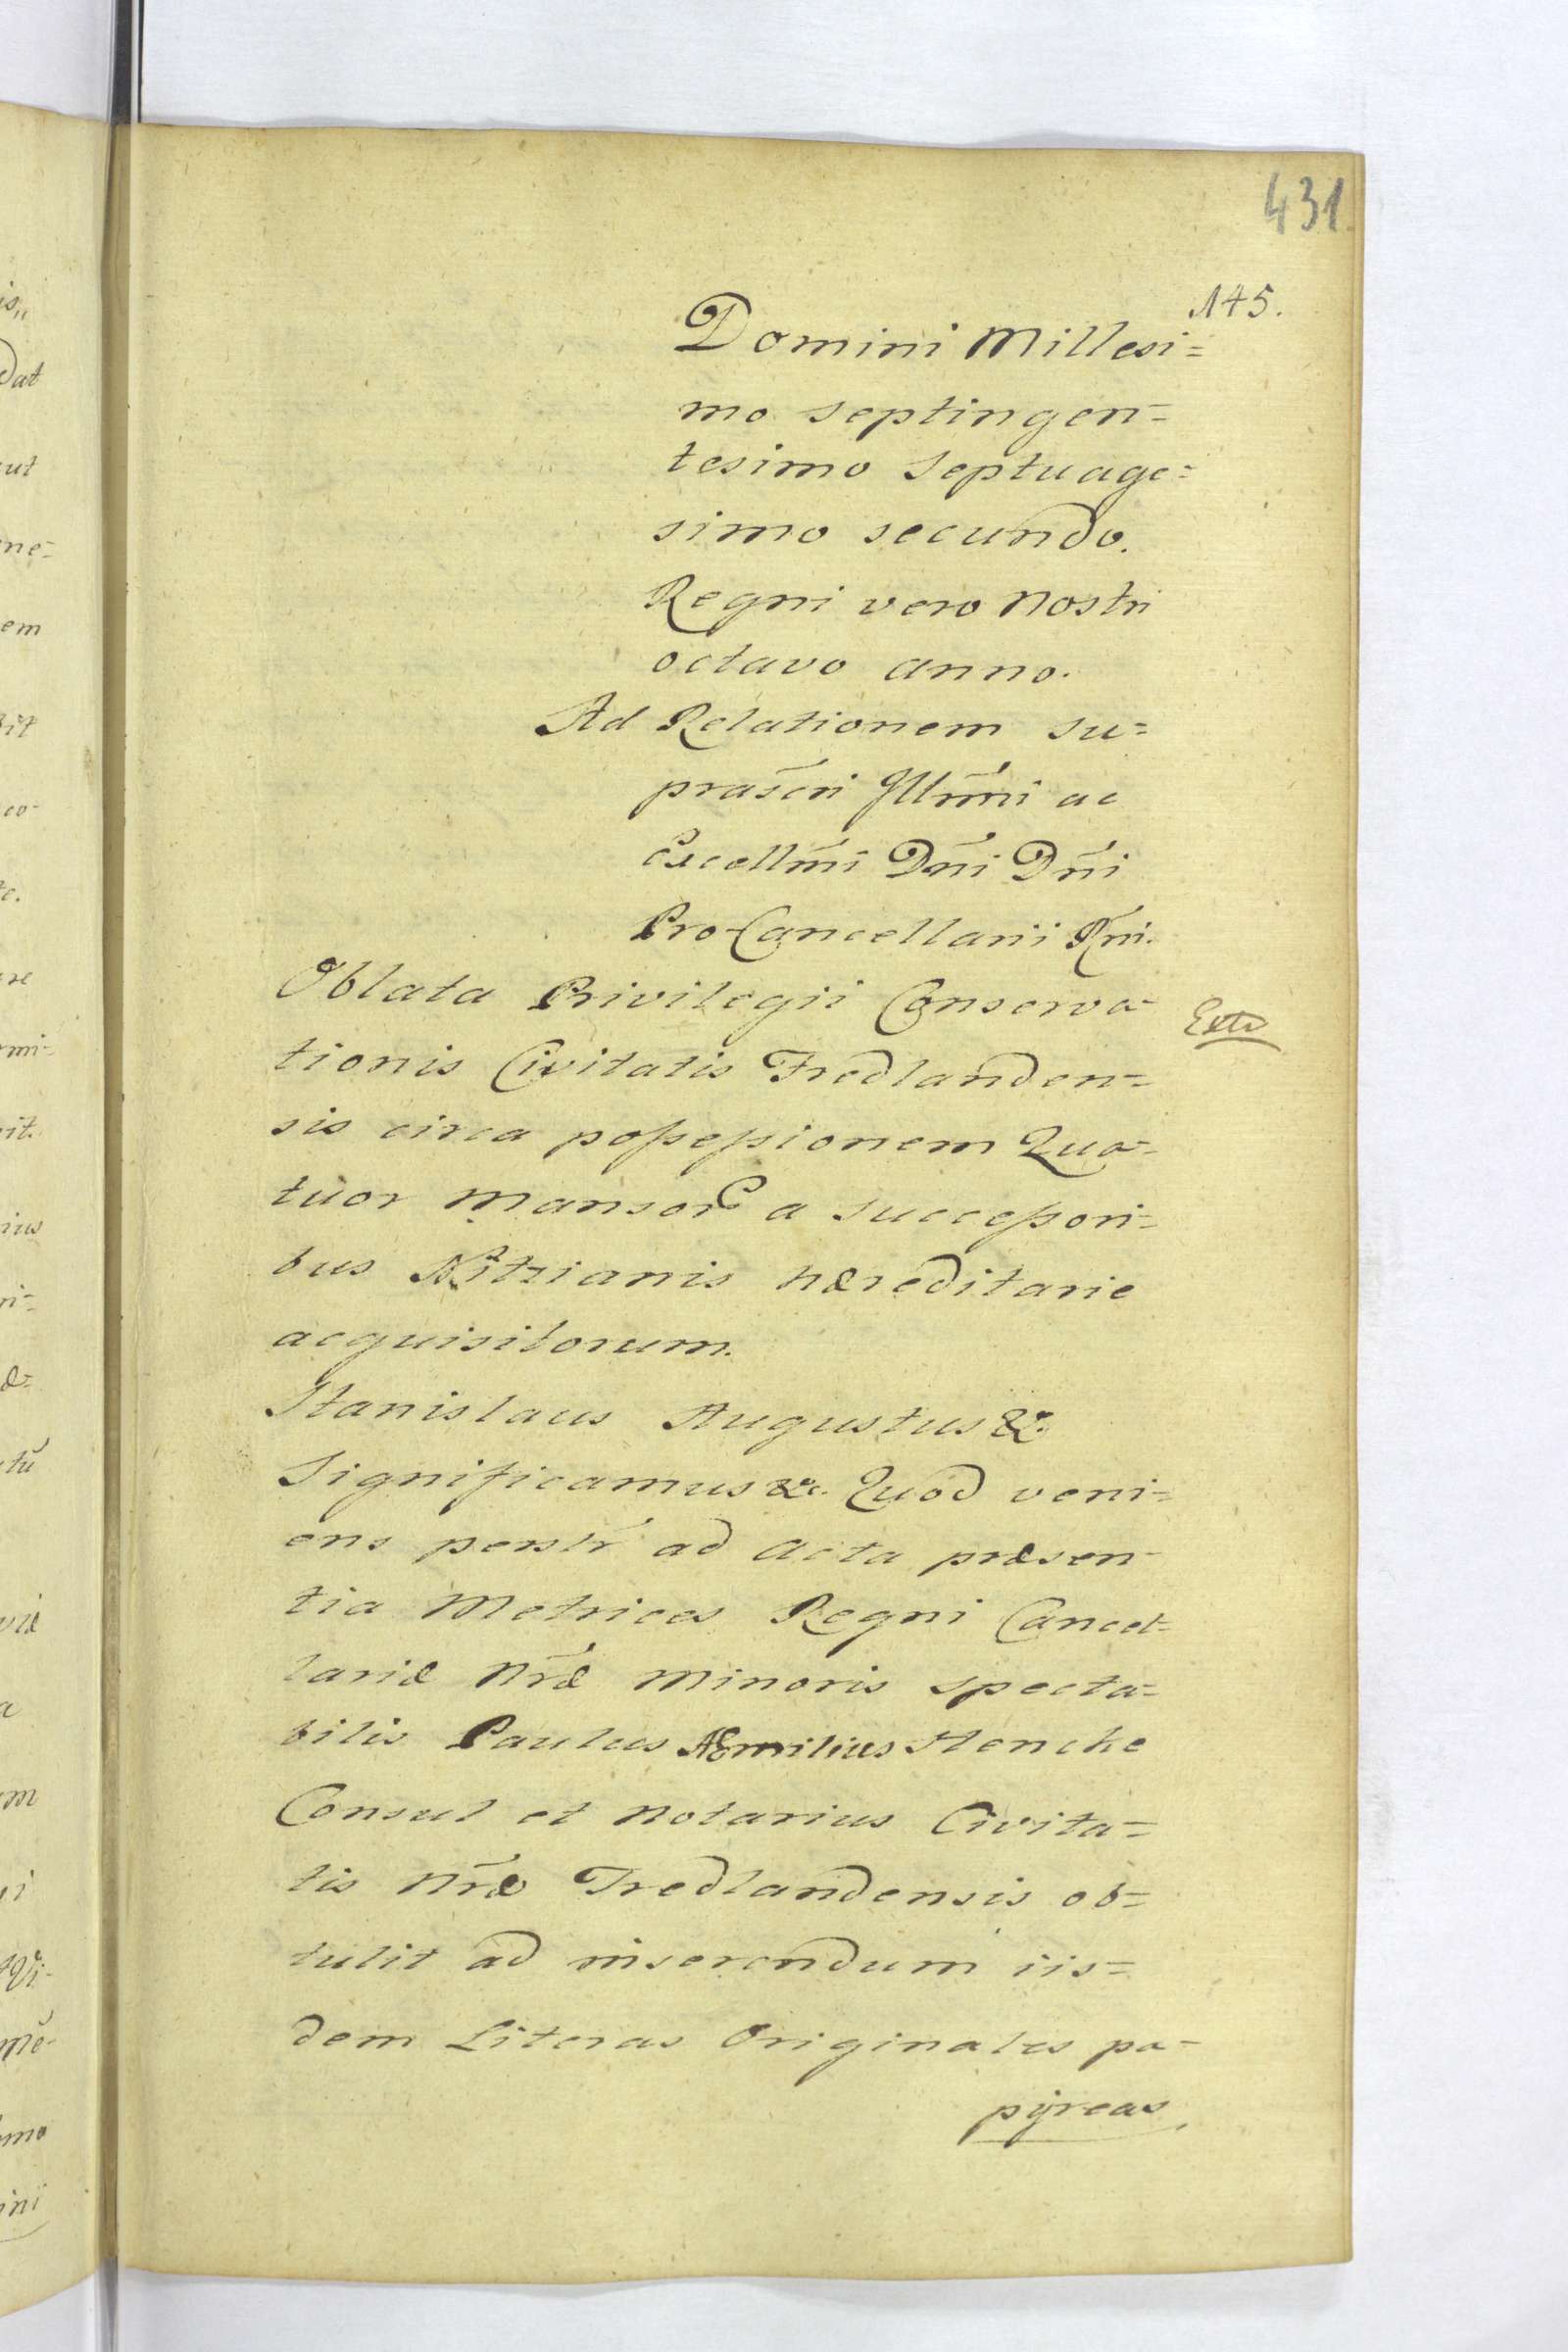 431.
145.
Domini Millesi=
mo septingen=
tesimo Septuage=
simo secundo.
Regni vero Nostri
octavo anno.
Ad Relationem su=
prascri Illmni ac
Excellmi Dni Dni
Pro-Cancellarii Rni.
Oblata Privilegii Conserva-
tionis Civitatis Fredlanden=
sis circa poſseſsionem Qua-
tuor Mansor a succeſsori=
bus Nitzianis hæreditarie
acquisitorum.
Extr
Stanislaus Augustus &c.
Significamus &c. Quod veni=
ens perslr ad acta præsen-
tia Metrices Regni Cancel=
lariæ Nræ Minoris specta=
bilis Paulus Æmilius Hencke
Consul et Notarius Civita=
tis Nræ Fredlandensis ob=
tulit ad inserendum iis=
dem Literas Originales pa-
pÿreas
is,,
dat
ut
ne=
em
co-
re
mi-
it.
ius
ri=
æ=
tu
viæ
a
m
me-
mo
ini